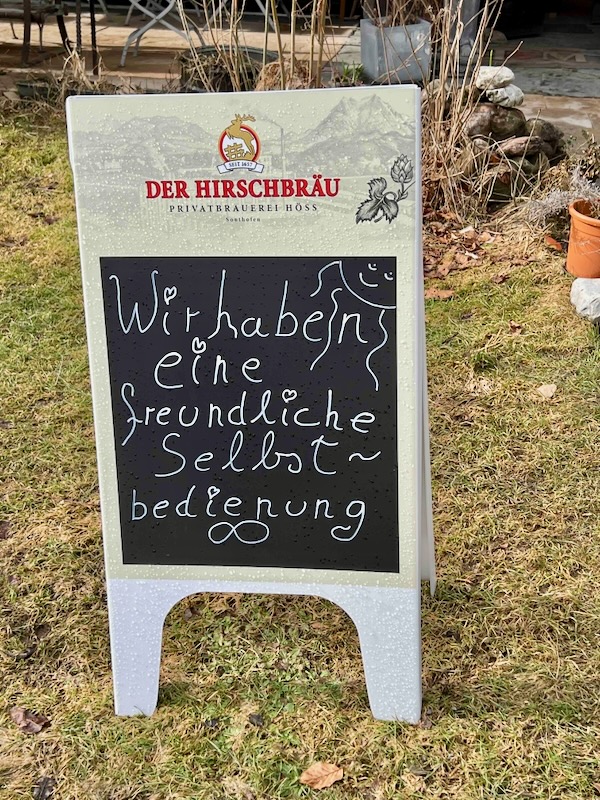 SEIT 1657
DER HIRSCHBRÄU
PRIVATBRAUEREI HÖSS
Sonthofen
Wir haben
eine
freundliche
Selbst~
bedienung